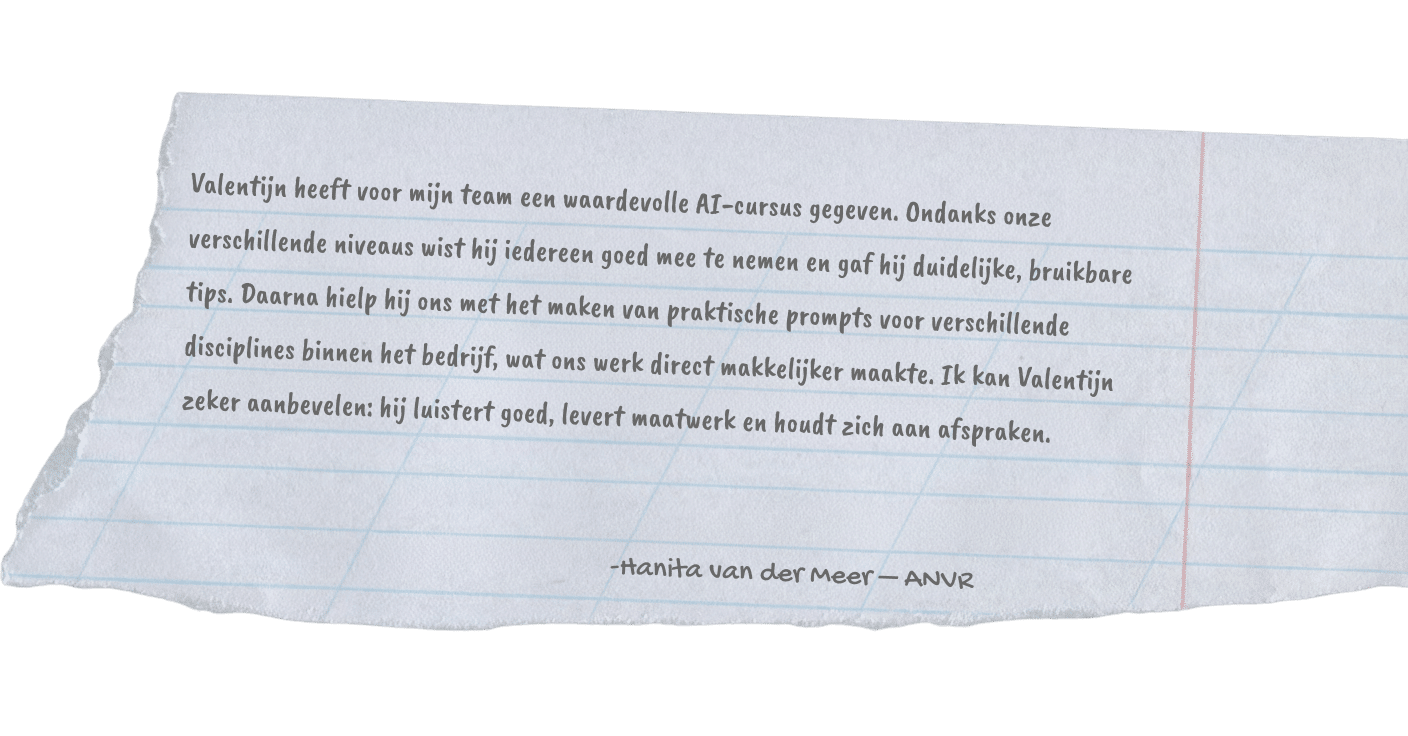 Valentijn heeft voor mijn team een waardevolle AI-cursus gegeven. Ondanks onze
verschillende niveaus wist hij iedereen goed mee te nemen en gaf hij duidelijke, bruikbare
tips. Daarna hielp hij ons met het maken van praktische prompts voor verschillende
disciplines binnen het bedrijf, wat ons werk direct makkelijker maakte. Ik kan Valentijn
zeker aanbevelen: hij luistert goed, levert maatwerk en houdt zich aan afspraken.
-Hanita van der Meer — ANVR